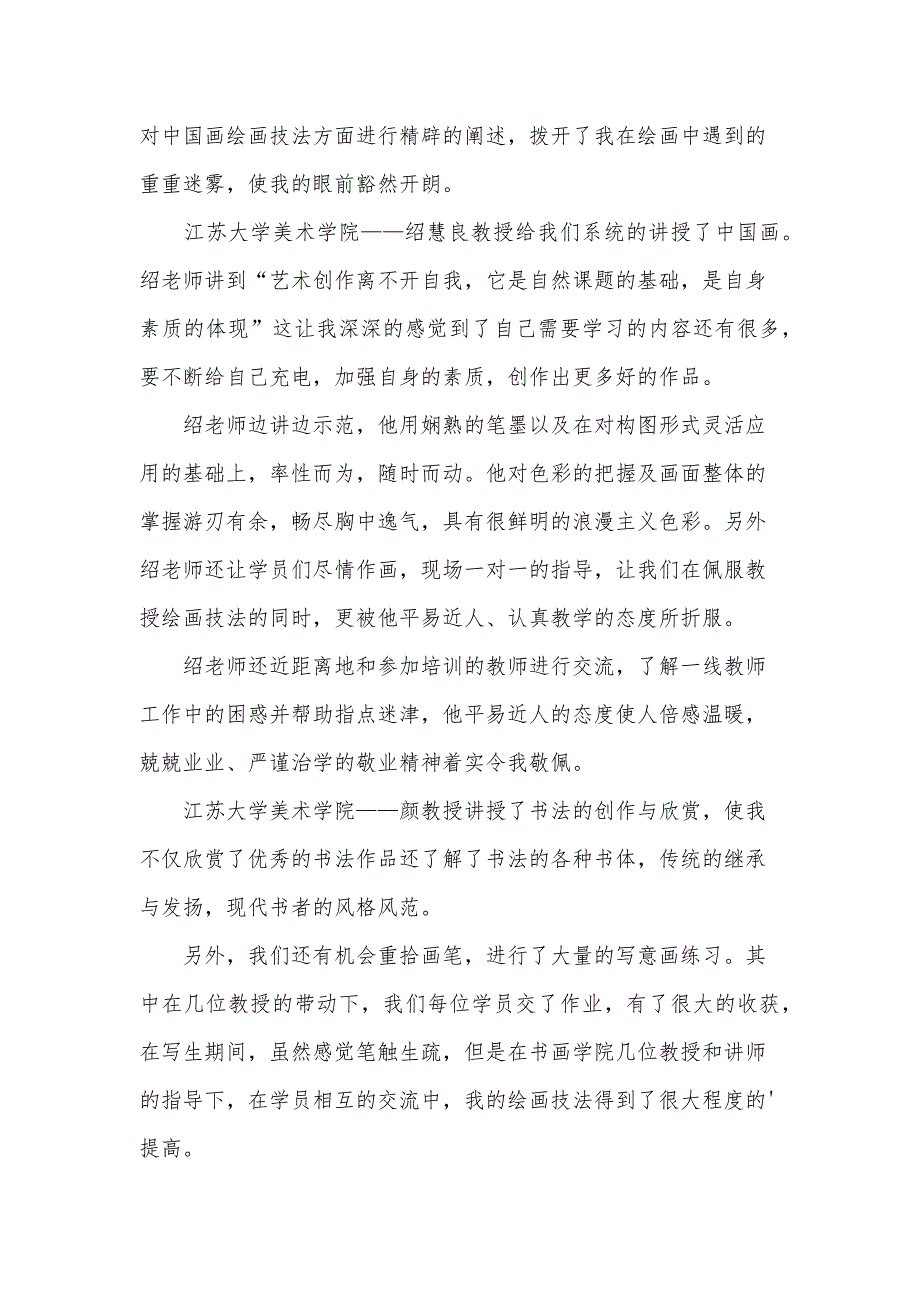 对中国画绘画技法方面进行精辟的阐述，拨开了我在绘画中遇到的
重重迷雾，使我的眼前豁然开朗。
江苏大学美术学院——绍慧良教授给我们系统的讲授了中国画。
绍老师讲到“艺术创作离不开自我，它是自然课题的基础，是自身
素质的体现”这让我深深的感觉到了自己需要学习的内容还有很多，
要不断给自己充电，加强自身的素质，创作出更多好的作品。
绍老师边讲边示范，他用娴熟的笔墨以及在对构图形式灵活应
用的基础上，率性而为，随时而动。他对色彩的把握及画面整体的
掌握游刃有余，畅尽胸中逸气，具有很鲜明的浪漫主义色彩。另外
绍老师还让学员们尽情作画，现场一对一的指导，让我们在佩服教
授绘画技法的同时，更被他平易近人、认真教学的态度所折服。
绍老师还近距离地和参加培训的教师进行交流，了解一线教师
工作中的困惑并帮助指点迷津，他平易近人的态度使人倍感温暖，
兢兢业业、严谨治学的敬业精神着实令我敬佩。
江苏大学美术学院——颜教授讲授了书法的创作与欣赏，使我
不仅欣赏了优秀的书法作品还了解了书法的各种书体，传统的继承
与发扬，现代书者的风格风范。
另外，我们还有机会重拾画笔，进行了大量的写意画练习。其
中在几位教授的带动下，我们每位学员交了作业，有了很大的收获，
在写生期间，虽然感觉笔触生疏，但是在书画学院几位教授和讲师
的指导下，在学员相互的交流中，我的绘画技法得到了很大程度的'
提高。